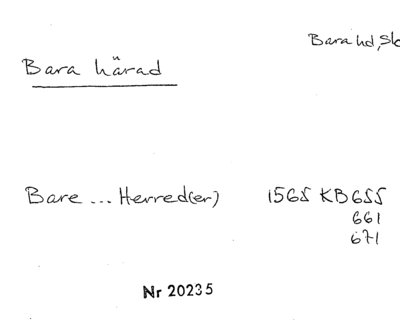 Bara hd, Sk
Bara härad
Bare ... Herred(er) 1565 KB 655
661
671
Nr 20235